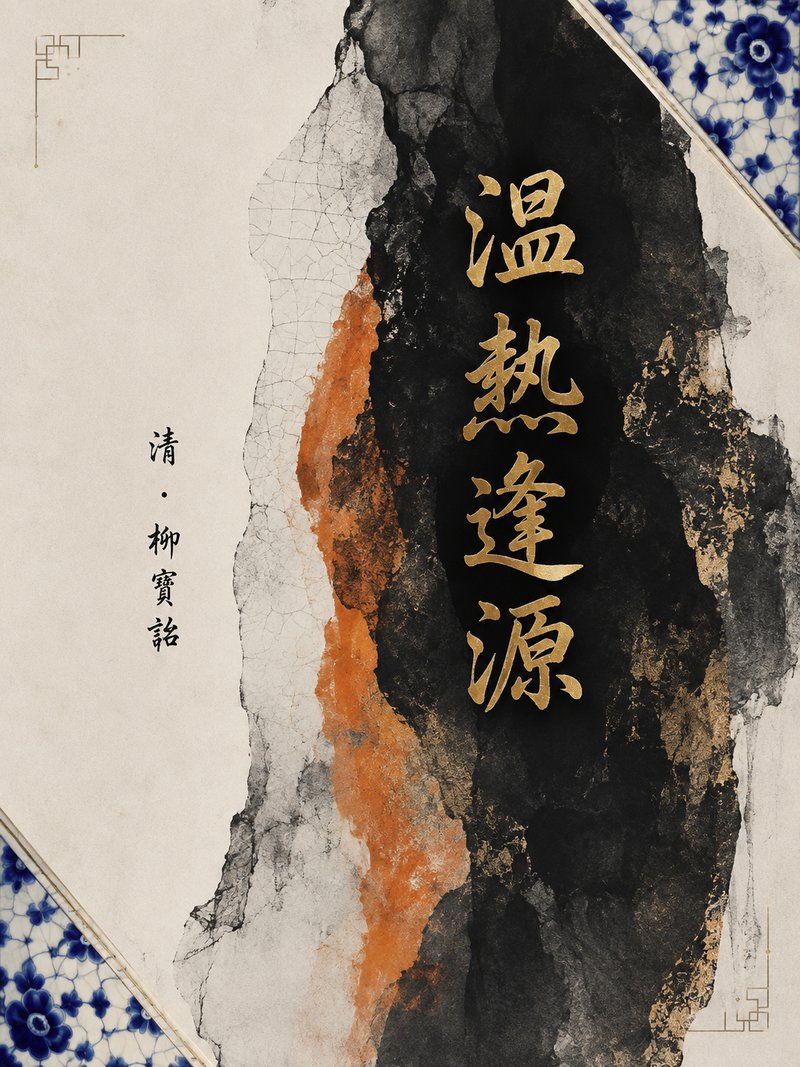 温熱逢源
清·柳寶詒